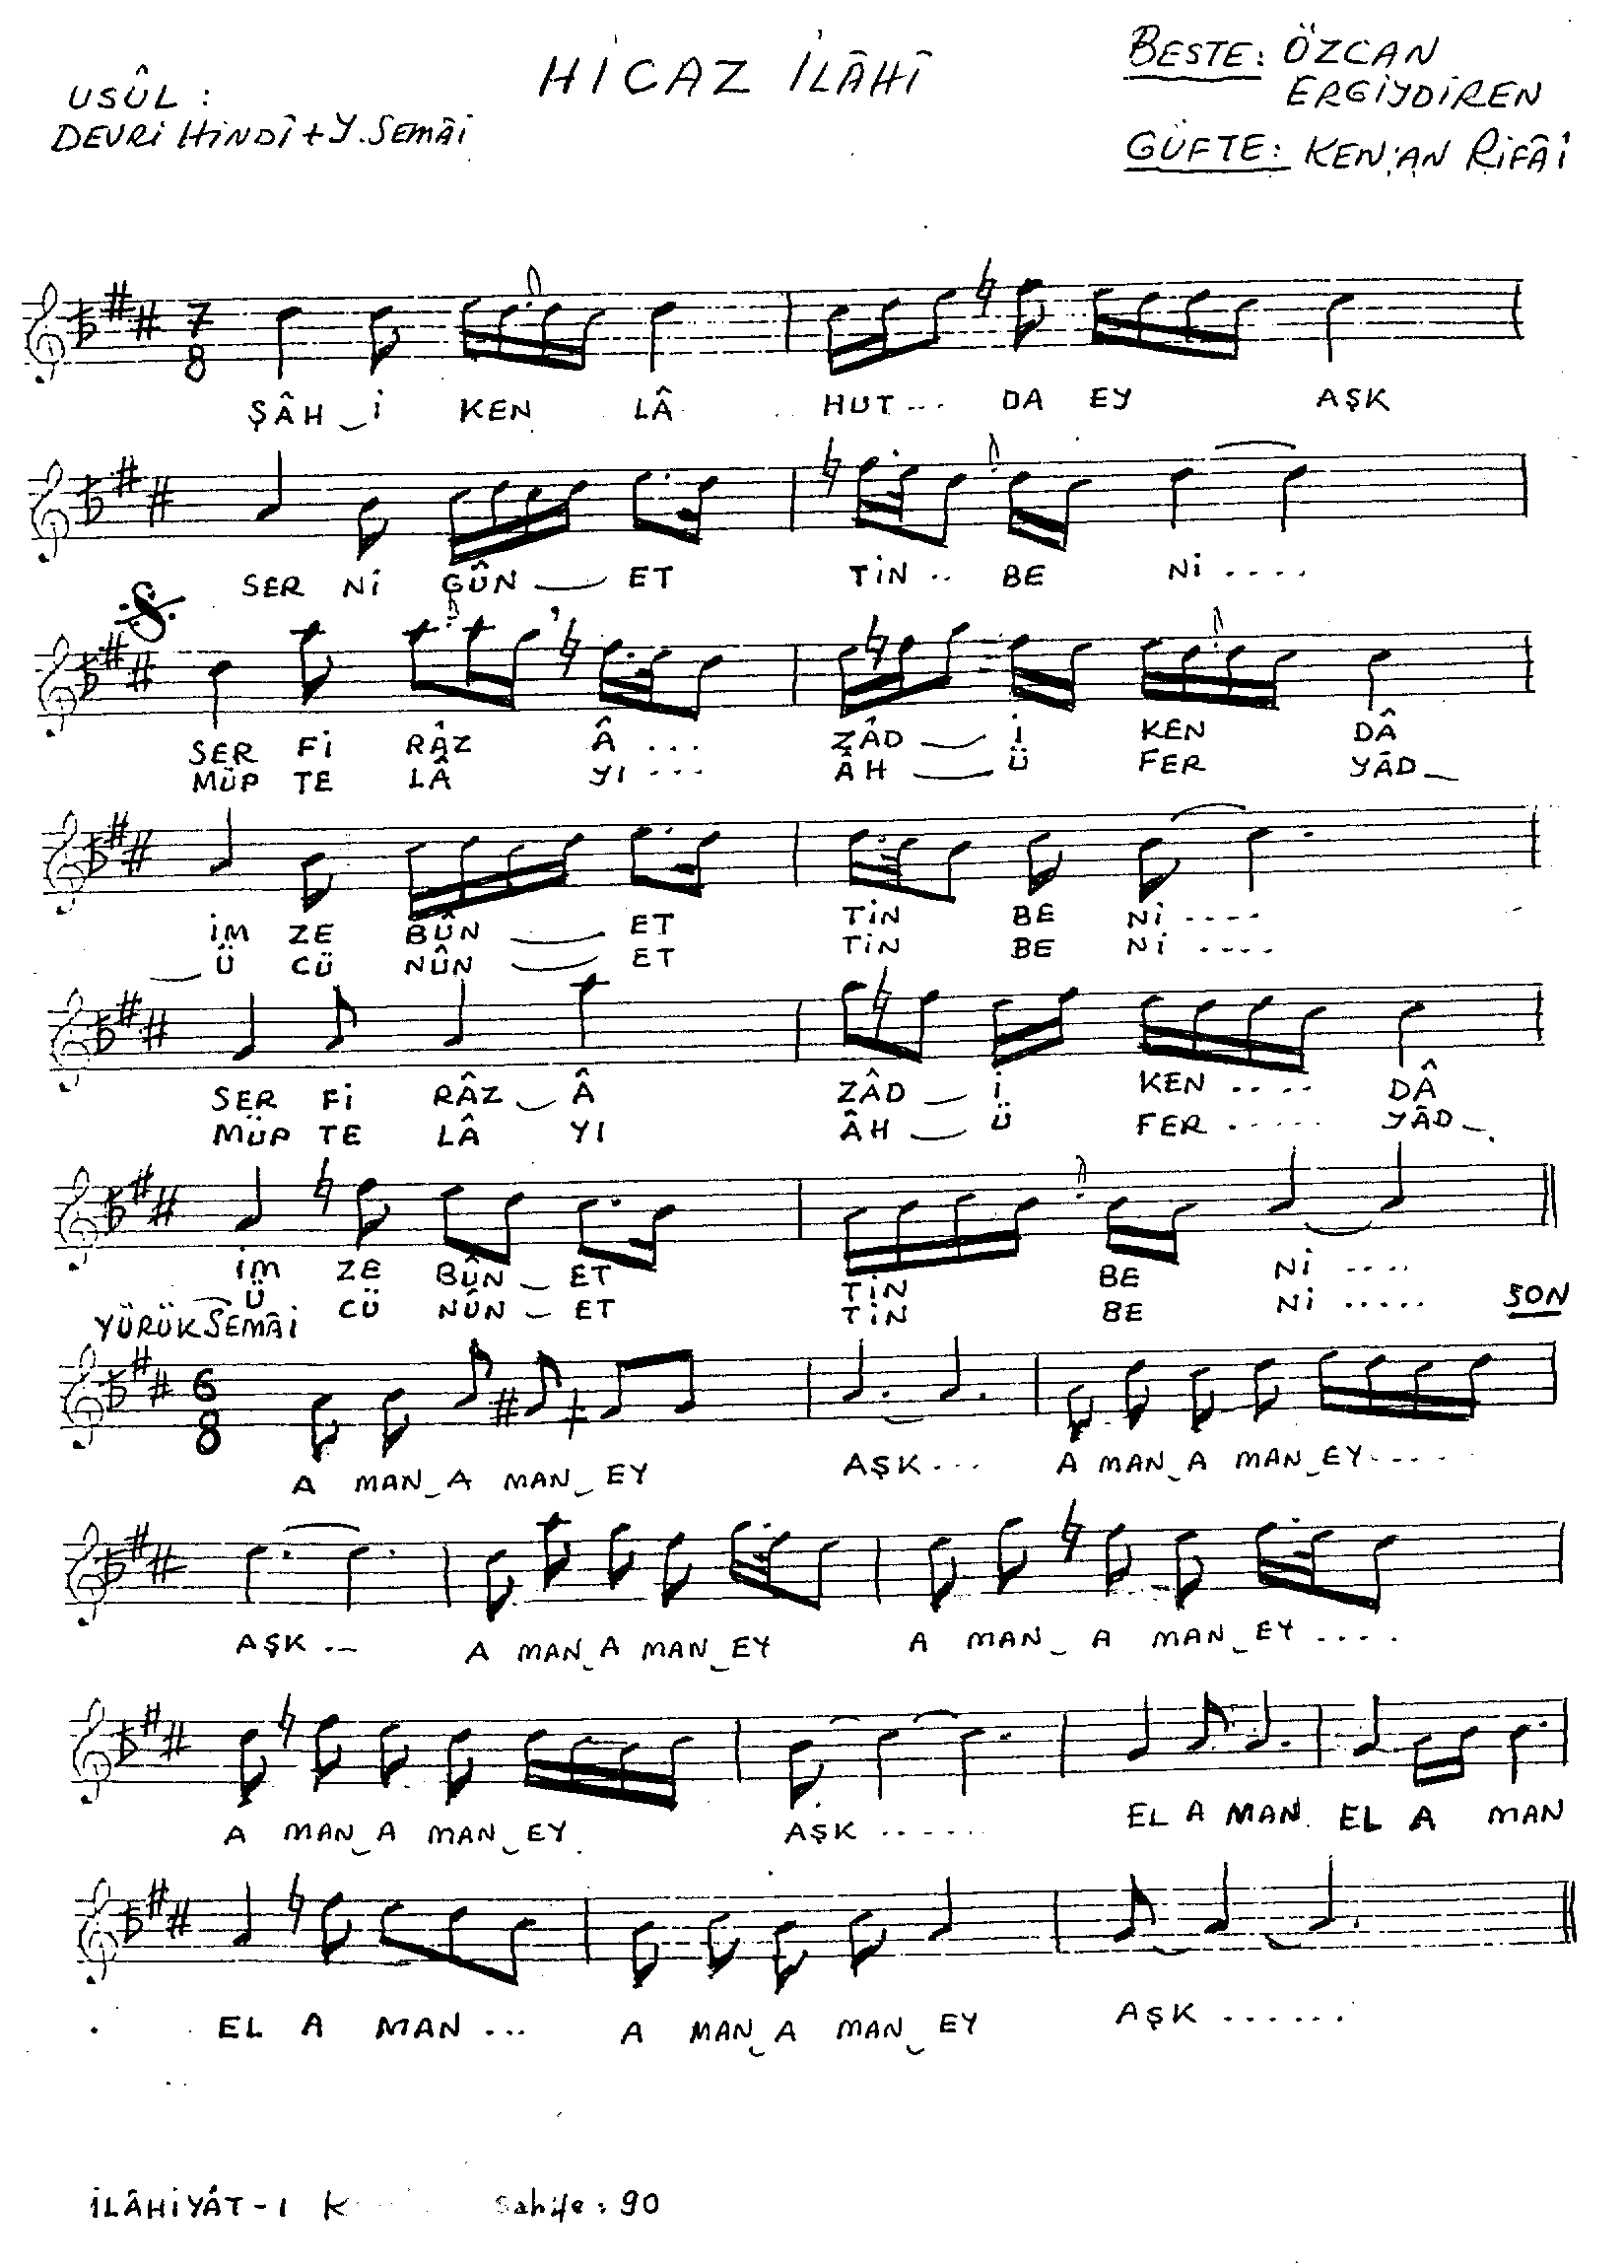 HİCAZ İLÂHÎ
USÛL :
DEVRİ HİNDÎ + Y. SEMÂİ
BESTE: ÖZCAN
ERGİYDİREN
GÜFTE: KEN'AN RİFÂİ
7
8
ŞÂH‿İ KEN LÂ HUT... DA EY AŞK
SER Nİ GÛN ‿ ET TİN.. BE Nİ....
SER Fİ RÂZ Â ... ZÂD ‿ İ KEN DÂ
MÜP TE LÂ YI ... ÂH ‿ Ü FER YÂD‿
İM ZE BÛN ‿ ET TİN BE Nİ ....
‿ Ü CÜ NÛN ‿ ET TİN BE Nİ ....
SER Fİ RÂZ‿Â ZÂD ‿ İ KEN .... DÂ
MÜP TE LÂ YI ÂH ‿ Ü FER ..... YÂD‿
İM ZE BÛN ‿ ET TİN BE Nİ ....
‿ Ü CÜ NÛN ‿ ET TİN BE Nİ ..... SON
YÜRÜK SEMÂİ
6
8
A MAN‿A MAN‿EY AŞK... A MAN‿A MAN‿EY....
AŞK... A MAN‿A MAN‿EY A MAN‿A MAN‿EY....
A MAN‿A MAN‿EY AŞK ...... EL A MAN EL A MAN
EL A MAN ... A MAN‿A MAN‿EY AŞK ......
İLÂHİYÂT-I K Sahife: 90